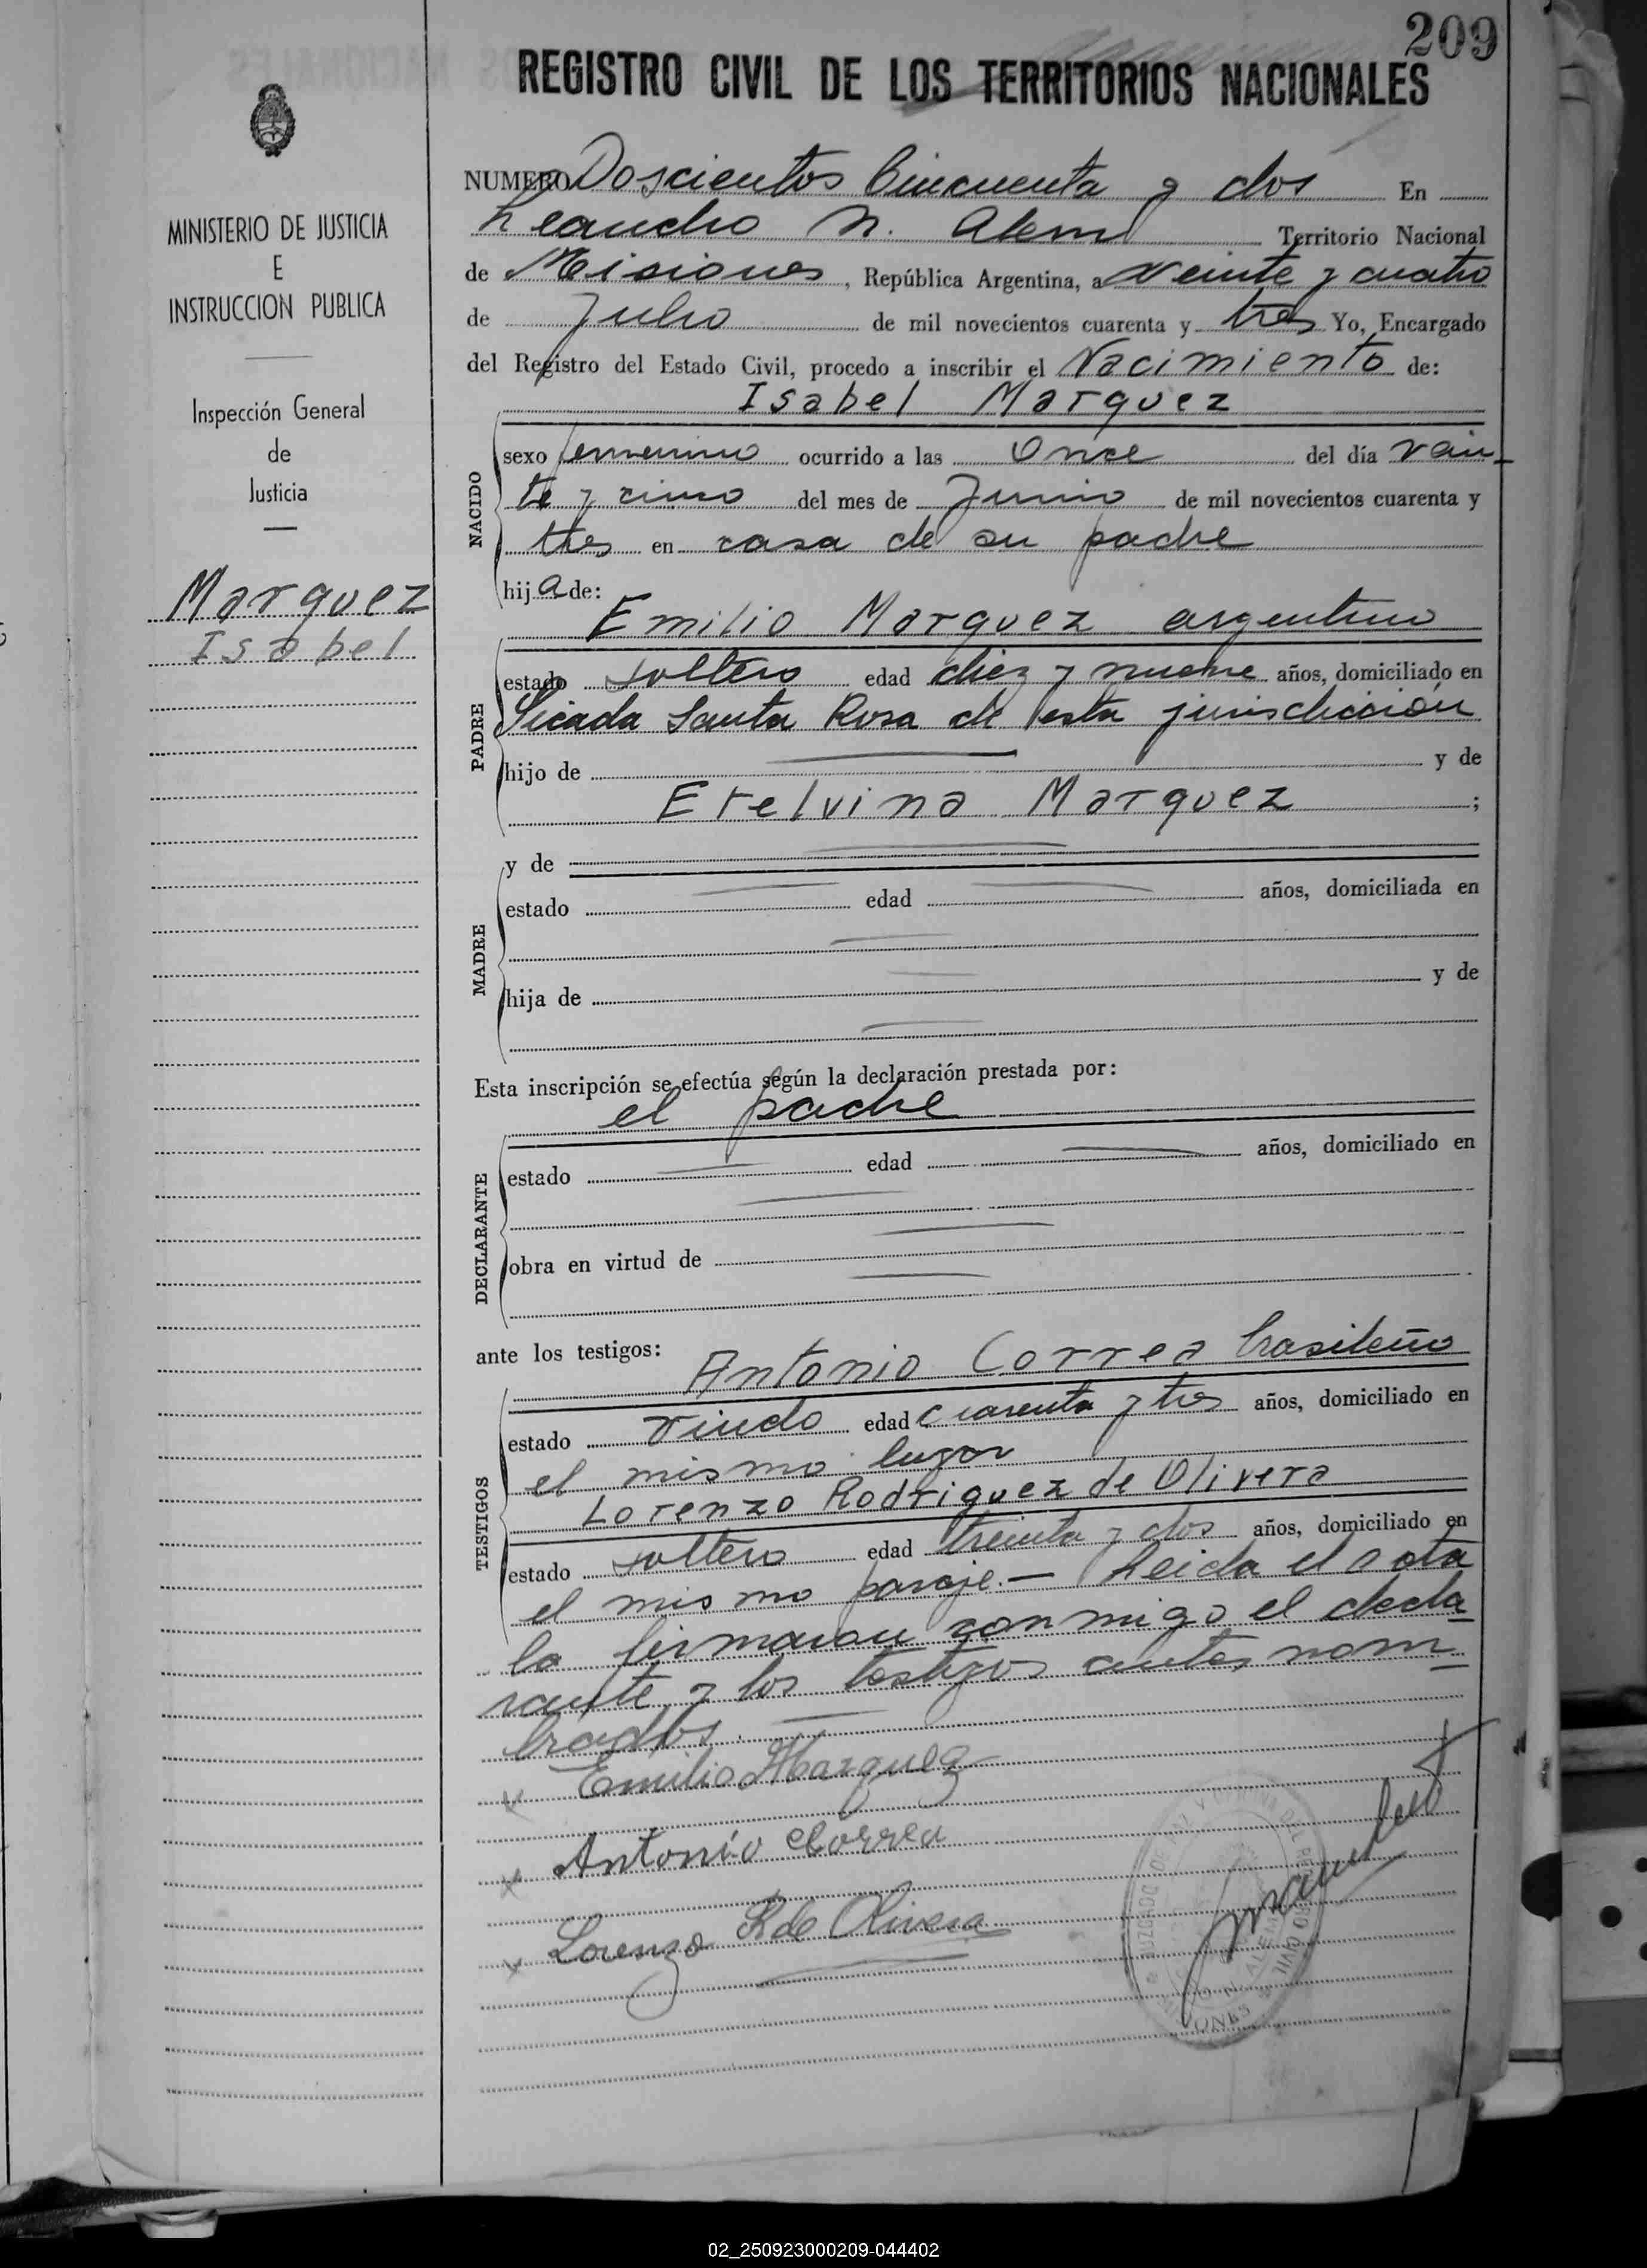 209
REGISTRO CIVIL DE LOS TERRITORIOS NACIONALES
MINISTERIO DE JUSTICIA
E
INSTRUCCION PUBLICA
Inspección General
de
Justicia
Marquez
Isabel
NUMERO Doscientos Cincuenta y dos En
Leandro N. Alem Territorio Nacional
de Misiones, República Argentina, a veinte y cuatro
de Julio de mil novecientos cuarenta y tres Yo, Encargado
del Registro del Estado Civil, procedo a inscribir el Nacimiento de:
Isabel Marquez
NACIDO
sexo femenino ocurrido a las Once del día vein-
te y cinco del mes de Junio de mil novecientos cuarenta y
tres en casa de su padre
hija de:
Emilio Marquez argentino
PADRE
estado soltero edad diez y nueve años, domiciliado en
Picada Santa Rosa de esta jurisdicción
hijo de y de
Etelvina Marquez ;
MADRE
y de
estado edad años, domiciliada en
hija de y de
Esta inscripción se efectúa según la declaración prestada por:
el padre
DECLARANTE
estado edad años, domiciliado en
obra en virtud de
ante los testigos:
Antonio Correa brasileño
TESTIGOS
estado viudo edad cuarenta y tres años, domiciliado en
el mismo lugar
Lorenzo Rodriguez de Olivera
estado soltero edad treinta y dos años, domiciliado en
el mismo paraje.— Leida el acta
la firmaron conmigo el decla-
rante y los testigos antes nom-
brados.
x Emilio Marquez
x Antonio Correa
x Lorenzo R de Olivera
JUZGADO DE PAZ Y OFICINA DEL REGISTRO CIVIL
N. ALEM
MISIONES
02_250923000209-044402